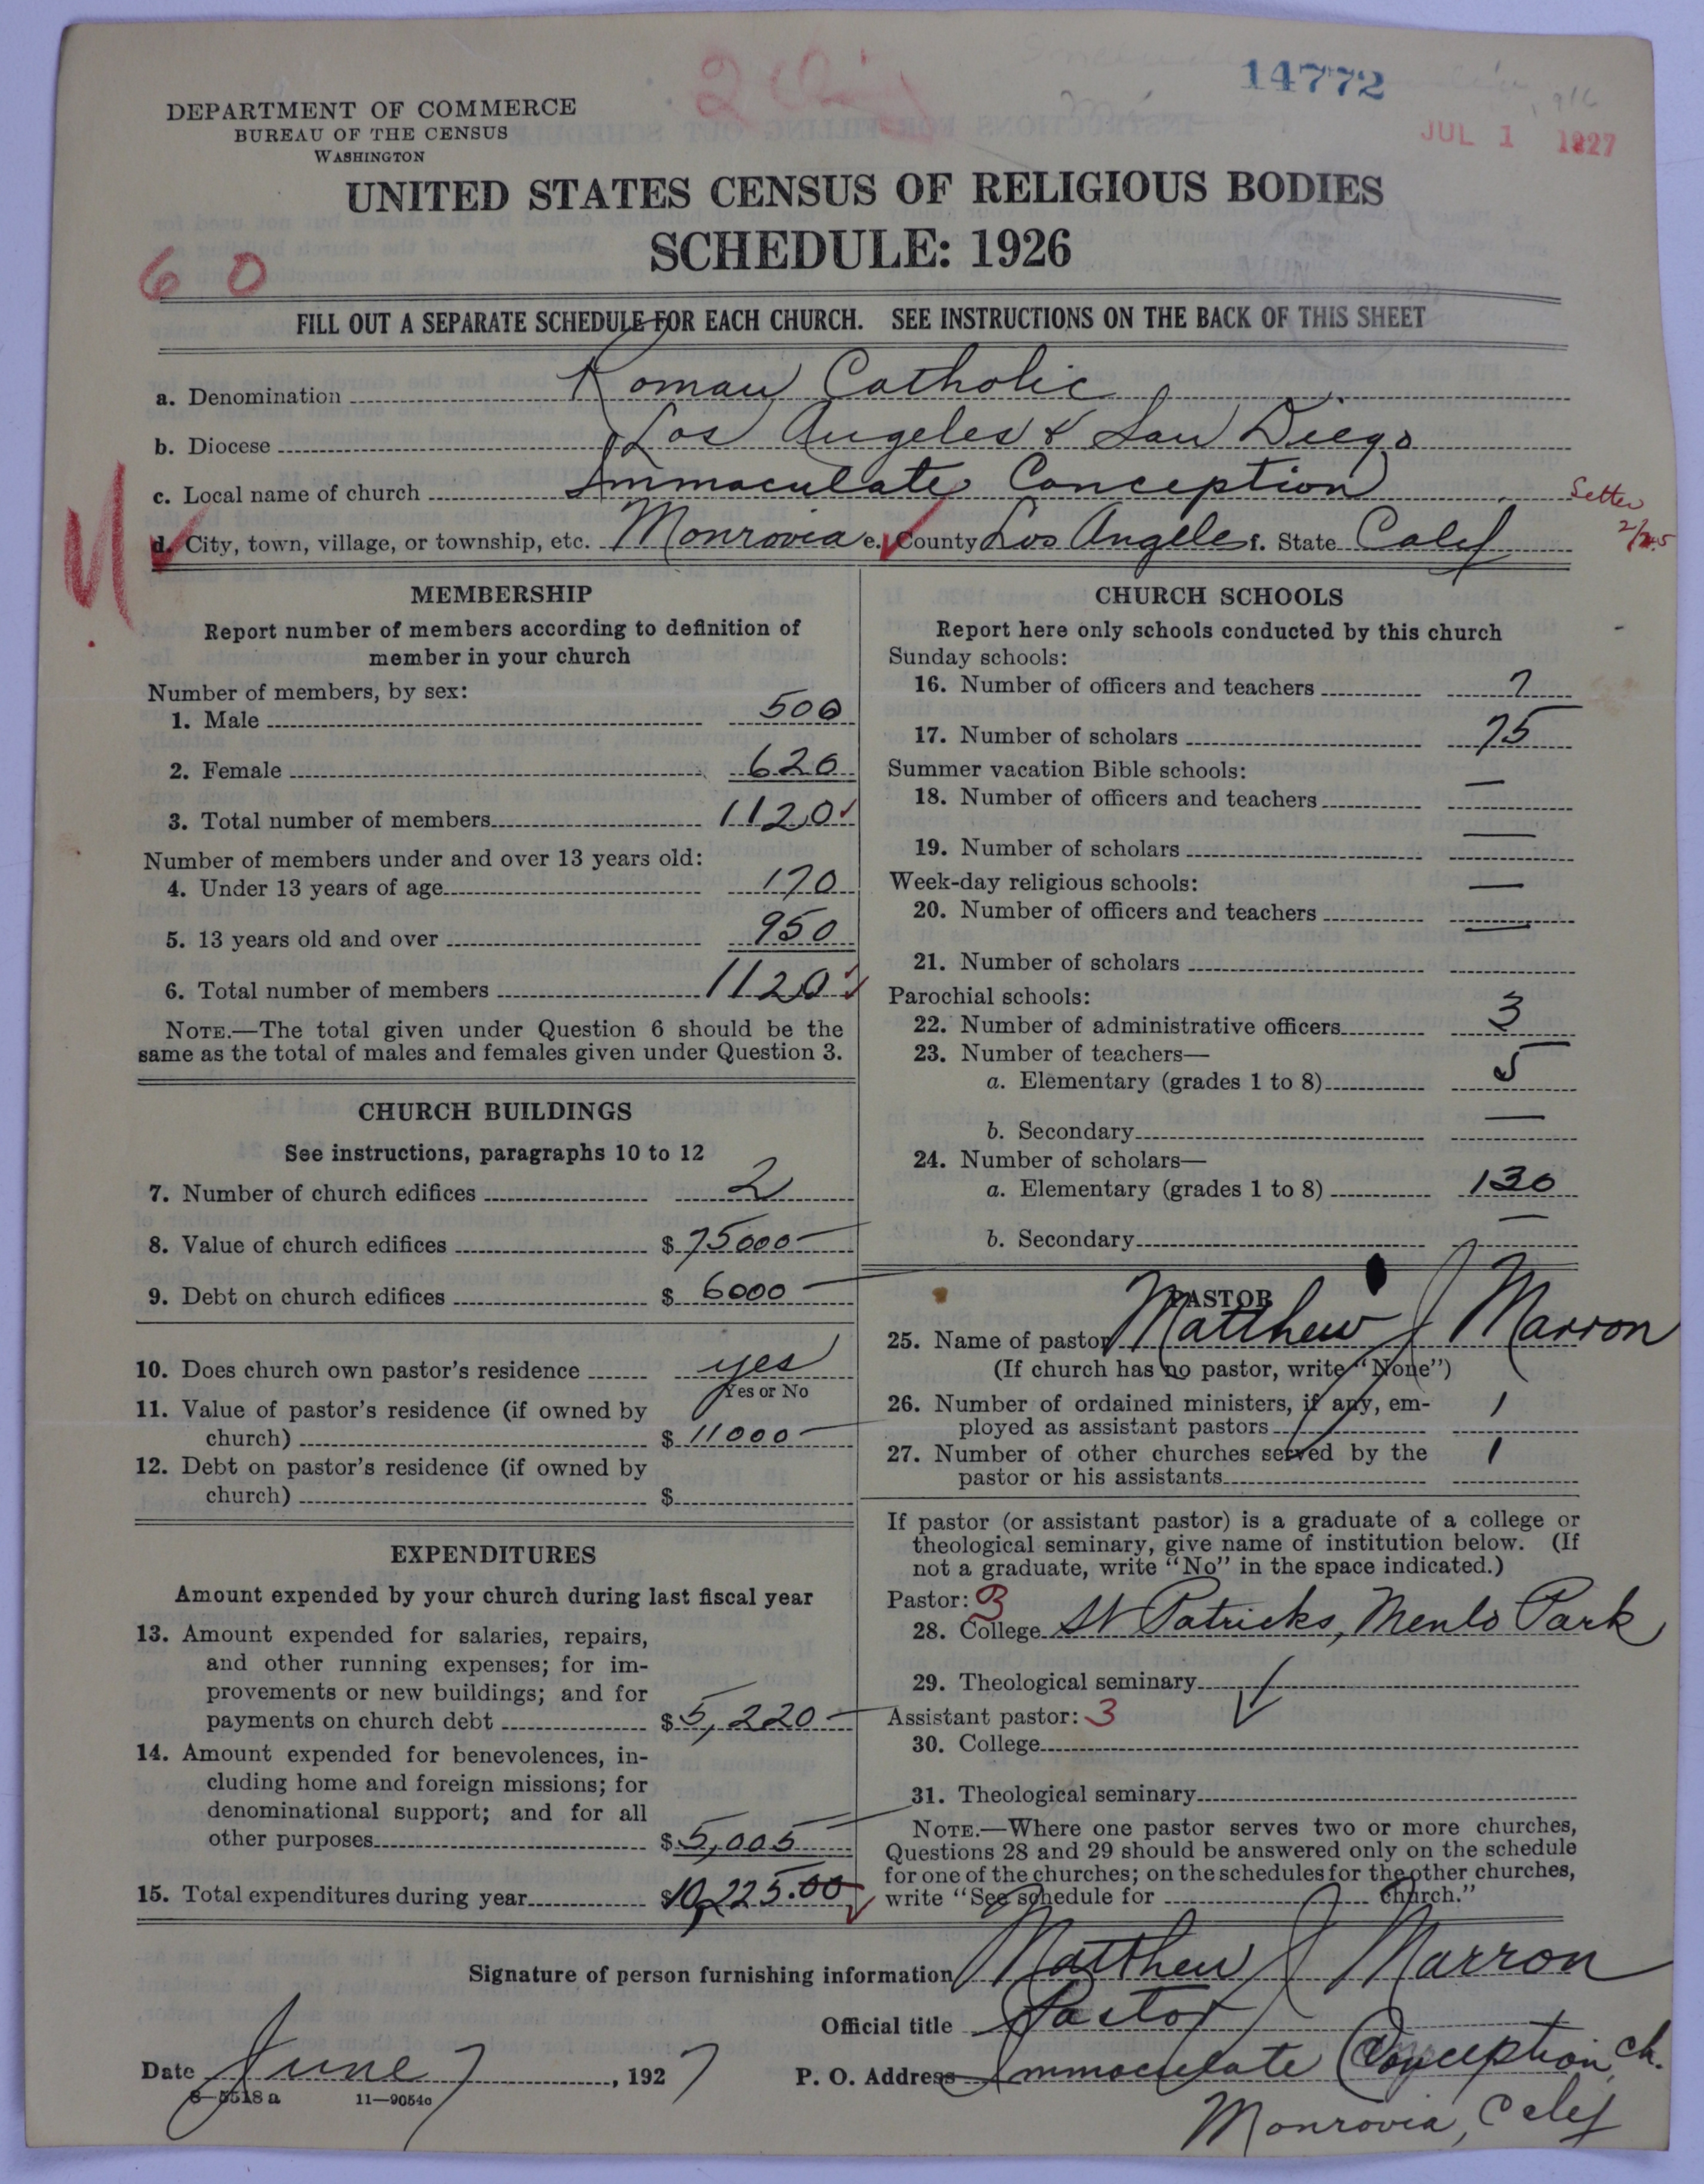 14772
JUL 1 1927
DEPARTMENT OF COMMERCE
BUREAU OF THE CENSUS
WASHINGTON
UNITED STATES CENSUS OF RELIGIOUS BODIES
SCHEDULE: 1926
60
FILL OUT A SEPARATE SCHEDULE FOR EACH CHURCH. SEE INSTRUCTIONS ON THE BACK OF THIS SHEET
a. Denomination Roman Catholic
b. Diocese Los Angeles & San Diego
c. Local name of church Immaculate Conception
d. City, town, village, or township, etc. Monrovia e. County Los Angeles f. State Calif
Letter
2/25
MEMBERSHIP
Report number of members according to definition of
member in your church
Number of members, by sex:
1. Male 500
2. Female 620
3. Total number of members 1120
Number of members under and over 13 years old:
4. Under 13 years of age 170
5. 13 years old and over 950
6. Total number of members 1120
NOTE.—The total given under Question 6 should be the
same as the total of males and females given under Question 3.
CHURCH BUILDINGS
See instructions, paragraphs 10 to 12
7. Number of church edifices 2
8. Value of church edifices $ 75000
9. Debt on church edifices $ 6000
10. Does church own pastor's residence yes
Yes or No
11. Value of pastor's residence (if owned by
church) $ 11000
12. Debt on pastor's residence (if owned by
church) $
EXPENDITURES
Amount expended by your church during last fiscal year
13. Amount expended for salaries, repairs,
and other running expenses; for im-
provements or new buildings; and for
payments on church debt $ 5,220
14. Amount expended for benevolences, in-
cluding home and foreign missions; for
denominational support; and for all
other purposes $ 5,005
15. Total expenditures during year $ 10,225.00
CHURCH SCHOOLS
Report here only schools conducted by this church
Sunday schools:
16. Number of officers and teachers 7
17. Number of scholars 75
Summer vacation Bible schools:
18. Number of officers and teachers —
19. Number of scholars —
Week-day religious schools:
20. Number of officers and teachers —
21. Number of scholars —
Parochial schools:
22. Number of administrative officers 3
23. Number of teachers—
a. Elementary (grades 1 to 8) 5
b. Secondary —
24. Number of scholars—
a. Elementary (grades 1 to 8) 130
b. Secondary —
PASTOR
25. Name of pastor Matthew J Marron
(If church has no pastor, write "None")
26. Number of ordained ministers, if any, em-
ployed as assistant pastors 1
27. Number of other churches served by the
pastor or his assistants 1
If pastor (or assistant pastor) is a graduate of a college or
theological seminary, give name of institution below. (If
not a graduate, write "No" in the space indicated.)
Pastor: 3
28. College St Patricks, Menlo Park
29. Theological seminary ✓
Assistant pastor: 3
30. College
31. Theological seminary
NOTE.—Where one pastor serves two or more churches,
Questions 28 and 29 should be answered only on the schedule
for one of the churches; on the schedules for the other churches,
write "See schedule for Church."
Signature of person furnishing information Matthew J Marron
Official title Pastor
Date June 7, 1927 P. O. Address Immaculate Conception Ch.
Monrovia, Calif
8—5518 a 11—9054c